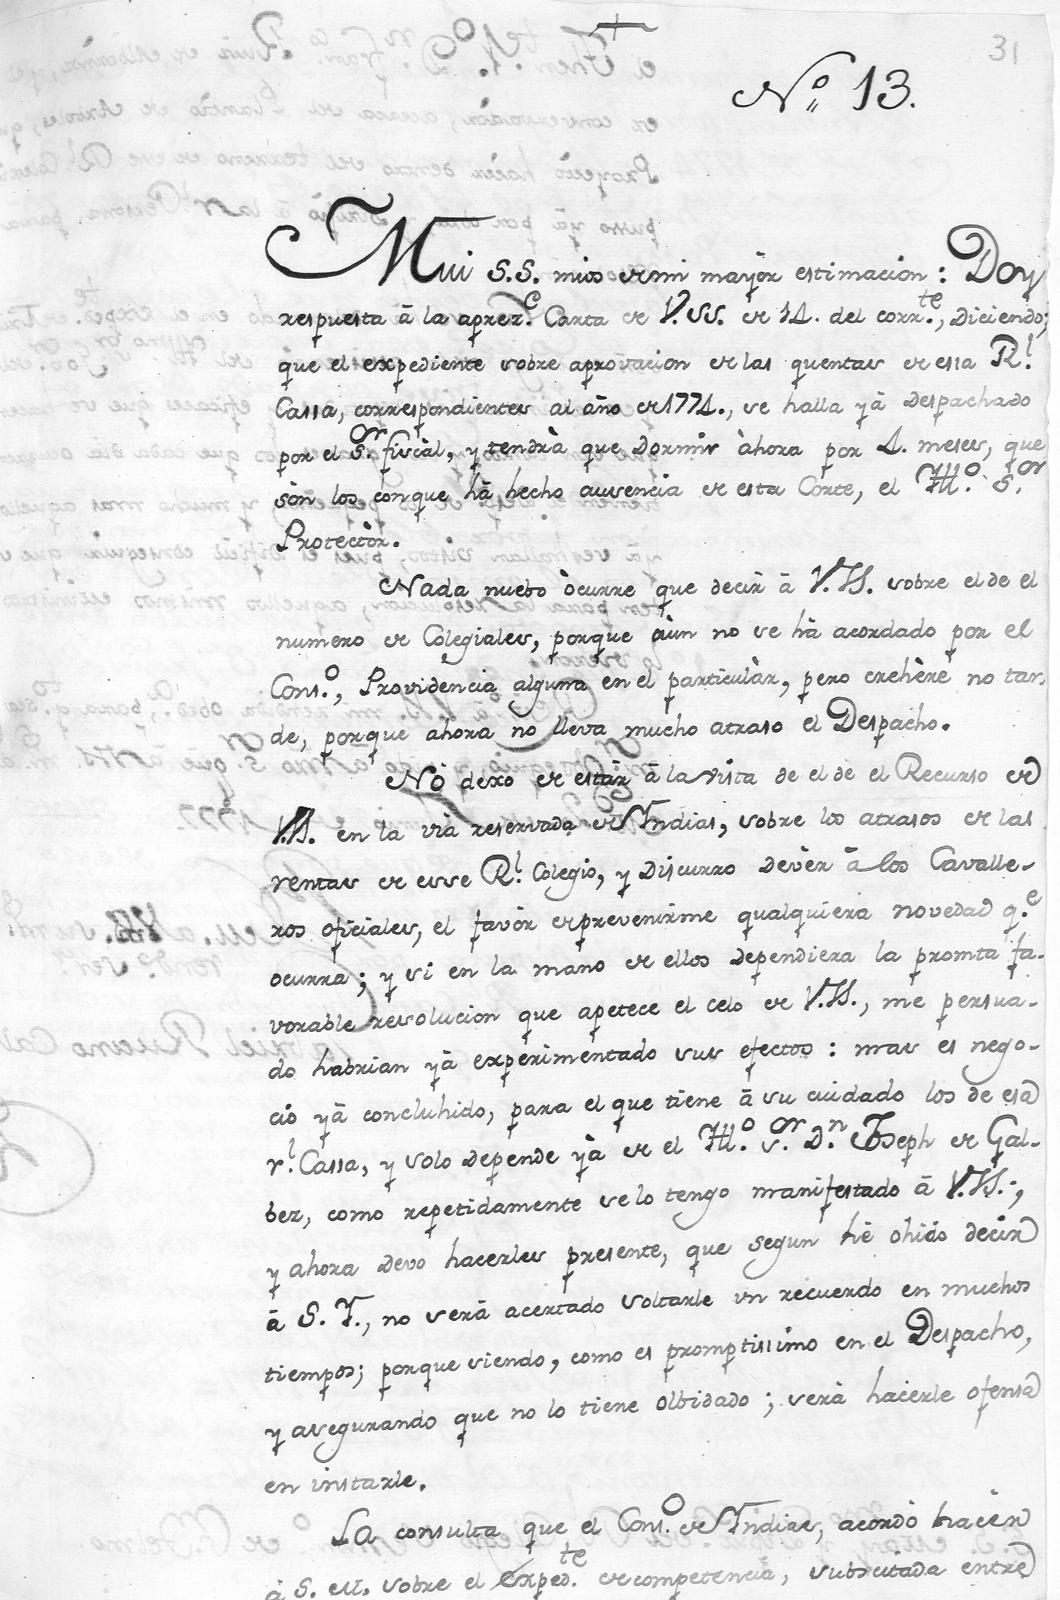 31
Nº 13.
Mui S.S. mios de mi mayor estimacion: Doy
respuesta â la aprez.e Carta de V.SS. de 14. del corr.te, Diciendo;
que el expediente sobre aprovacion de las quentas de essa R.l
Cassa, correspondientes al año de 1774., se halla yâ Despachado
por el S.or fiscàl, y tendrà que Dormir àhora por 4. meses, que
sòn los con que hà hecho ausencia de esta Corte, el Ill.o S.or
Protectòr.
Nada nuebo òcurre que decir â V.SS. sobre el de el
numero de Colegiales, porque àùn no se hà acordado por el
Cons.o, Providencia alguna en el particulàr, pero crehère no tar-
de, porque ahora no lleva mucho atraso el Despacho.
Nò dexo de estàr â la vista de el de el Recurso de
V.SS. en la vià reservada de Indias, sobre los atrasos de las
rentas de esse R.l Colegio, y Discurro devèr â los Cavalle-
ros oficiales, el favòr de prevenirme qualquiera novedad q.e
ocurra; y si en la mano de ellos dependiera la promta fa-
vorable resolucion que apetece el celo de V.SS., me persua-
do habrian yâ experimentado sus efectos: mas es nego-
ciò yâ concluhido, para el que tiene â su cuidado los de esa
r.l Cassa, y solo depende yà de el Ill.o s.or D.n Joseph de Gal-
bez, como repetidamente se lo tengo manifestado â V.SS.;
y ahora devo hacerles presente, que segun hê ohido decir
â S. I., no serâ acertado soltarle un recuerdo en muchos
tiempos; porque siendo, como es promptissimo en el Despacho,
y asegurando que no lo tiene olbidado; serà hacerle ofensa
en instarle.
La consulta que el Cons.o de Indias, acordò hacèr
â S. M. sobre el exped.te de competencia, subscitada entre